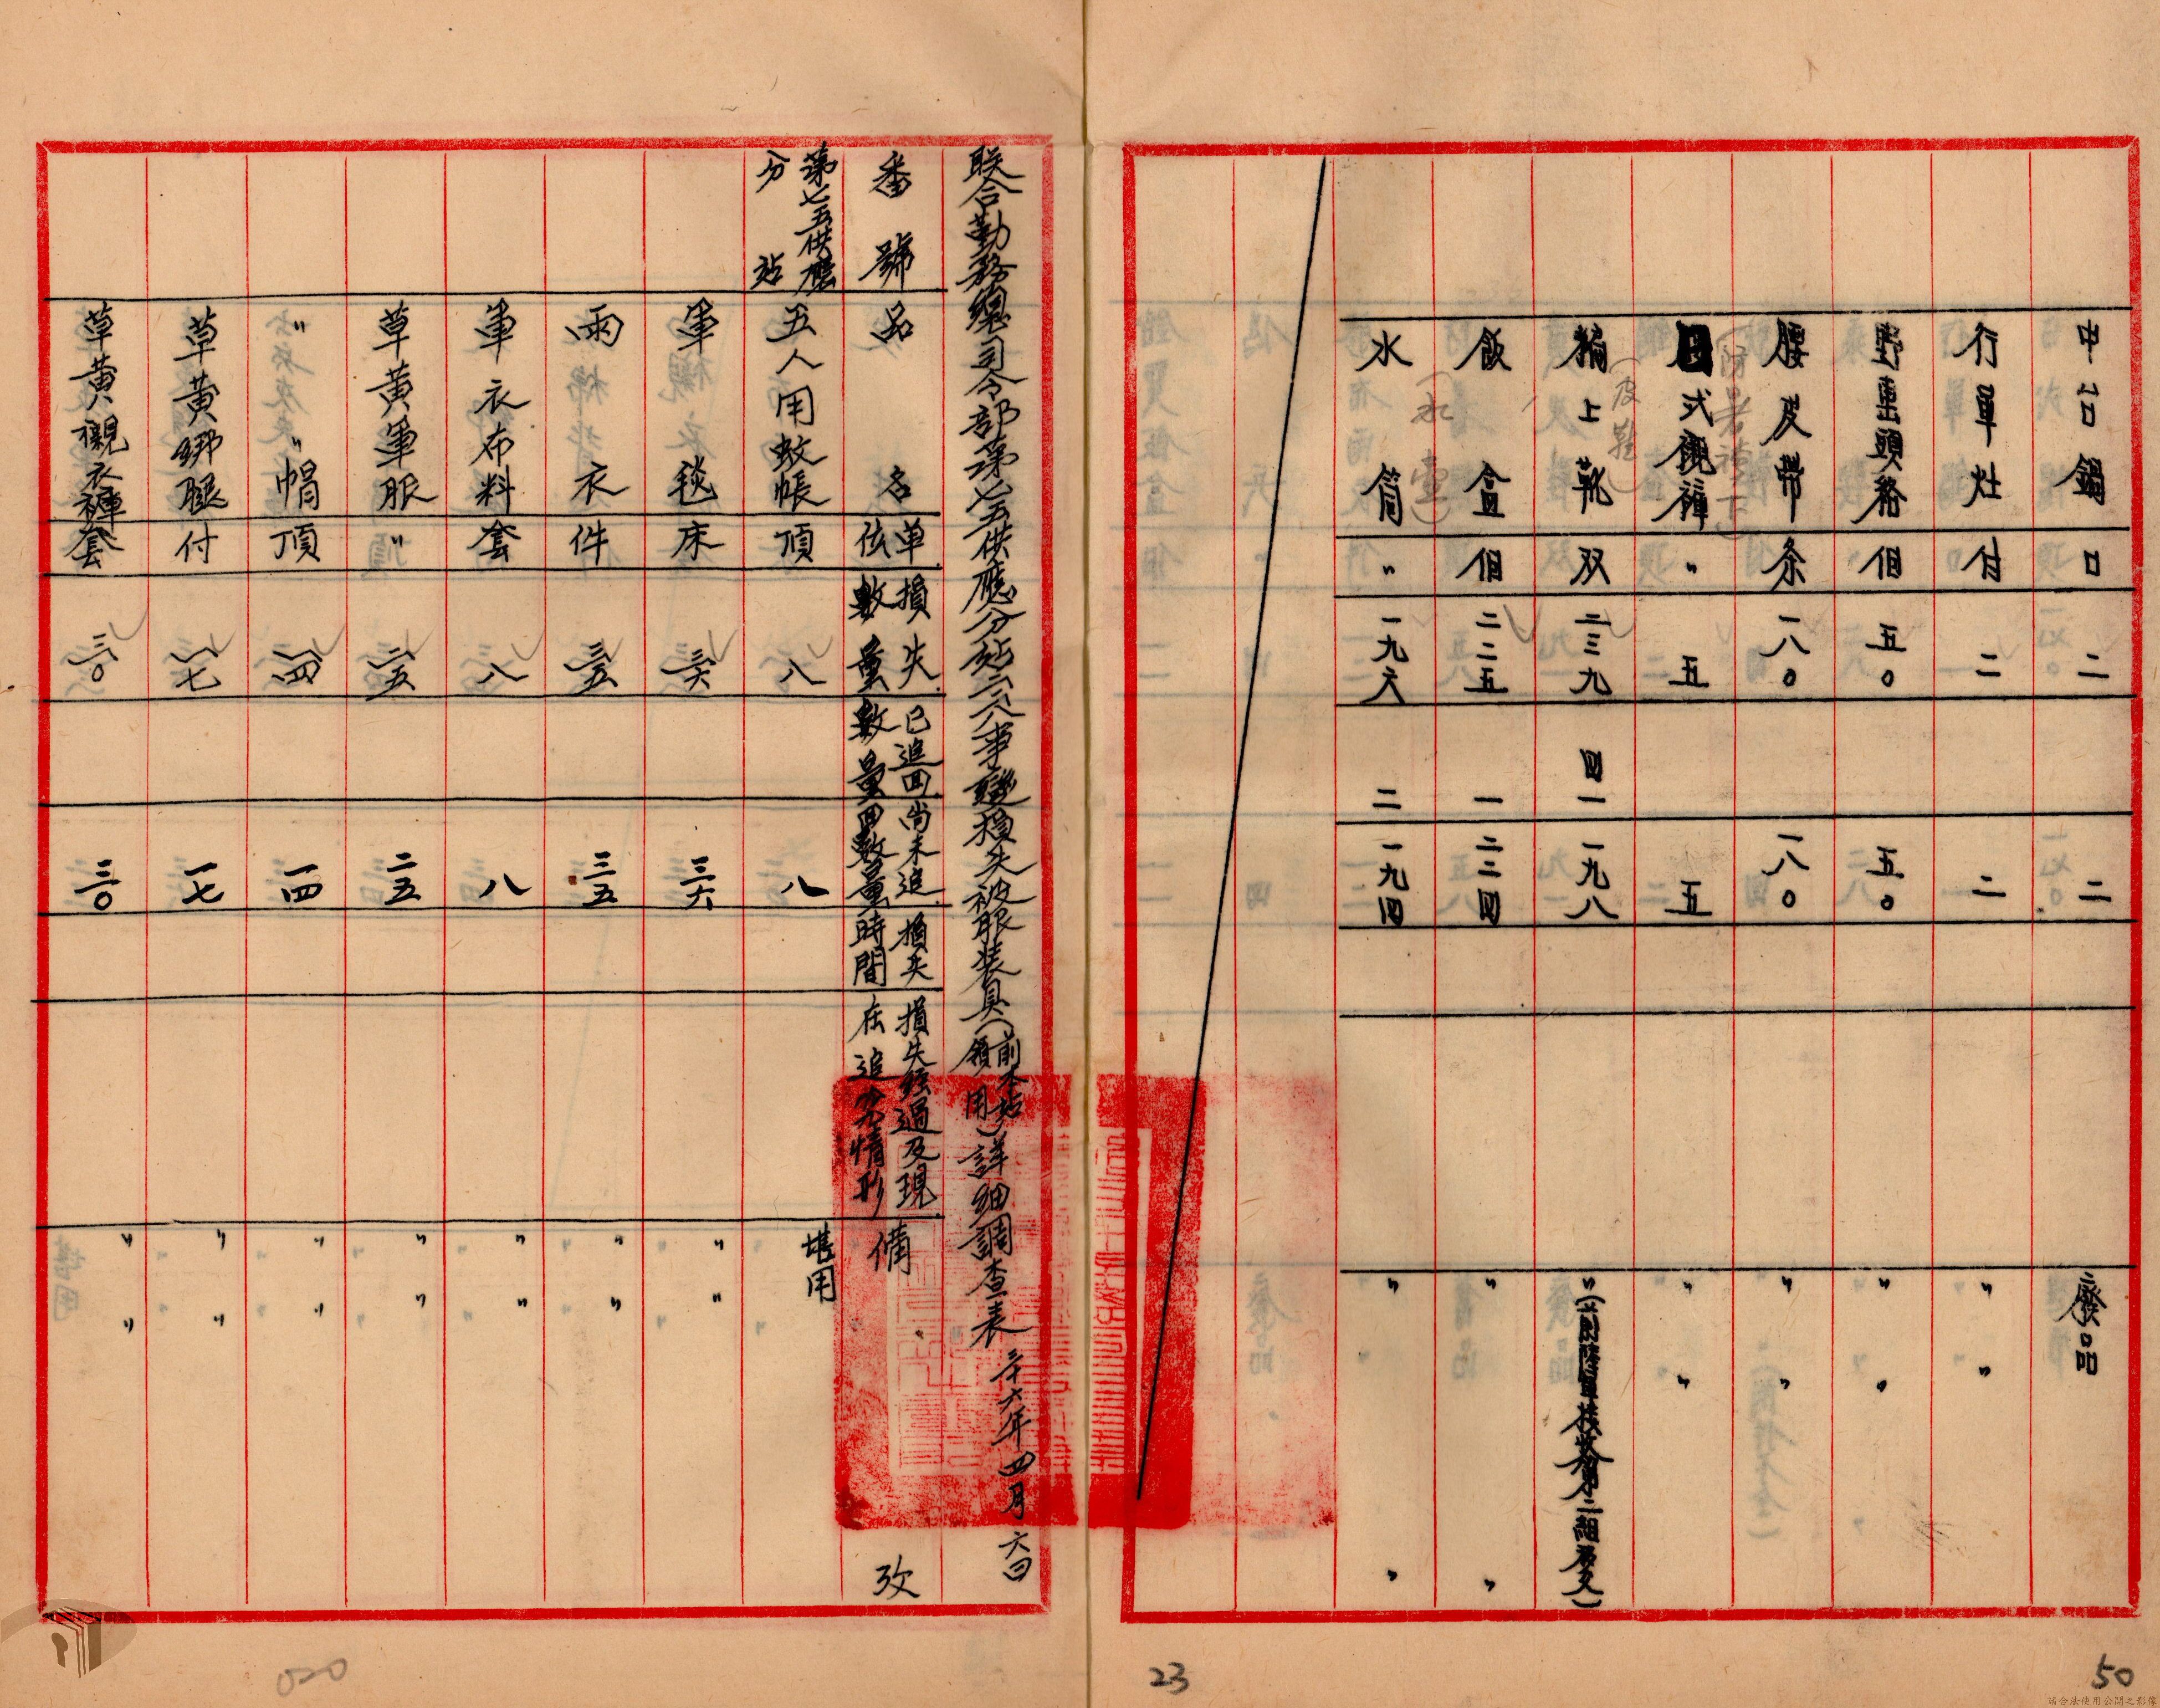 中台鍋 口 二 二 廢品
行軍灶 付 二 二 〃 〃
野車頭絡 個 五〇 五〇 〃 〃
腰皮帶 条 一八〇 一八〇 〃 〃
日式襯褲 〃 五 五 〃 〃
編上靴 双 二三九 四一 一九八 〃(前陸軍接收第二組移交)
(皮鞋)
飯盒 個 二二五 一 二二四 〃 〃
(水壺)
水筒 〃 一九六 二 一九四 〃 〃
联合勤務總司令部第七五供應分站二二八事變損失被服装具(前本站領用)詳細調查表 三十六年四月六日
番號 品名 单位 損失數量 已追回數量 尚未追回數量 損失時間 損失經過及現在追究情形 備攷
第七五供應分站 五人用蚊帳 頂 八 八 堪用
軍毯 床 三六 三六 〃 〃
雨衣 件 三五 三五 〃 〃
軍衣布料 套 八 八 〃 〃
草黃軍服 〃 二五 二五 〃 〃
〃 〃 帽 頂 一四 一四 〃 〃
草黃綁腿 付 一七 一七 〃 〃
草黃襯衣褲 套 三〇 三〇 〃 〃
020
23
50
請合法使用公開之影像